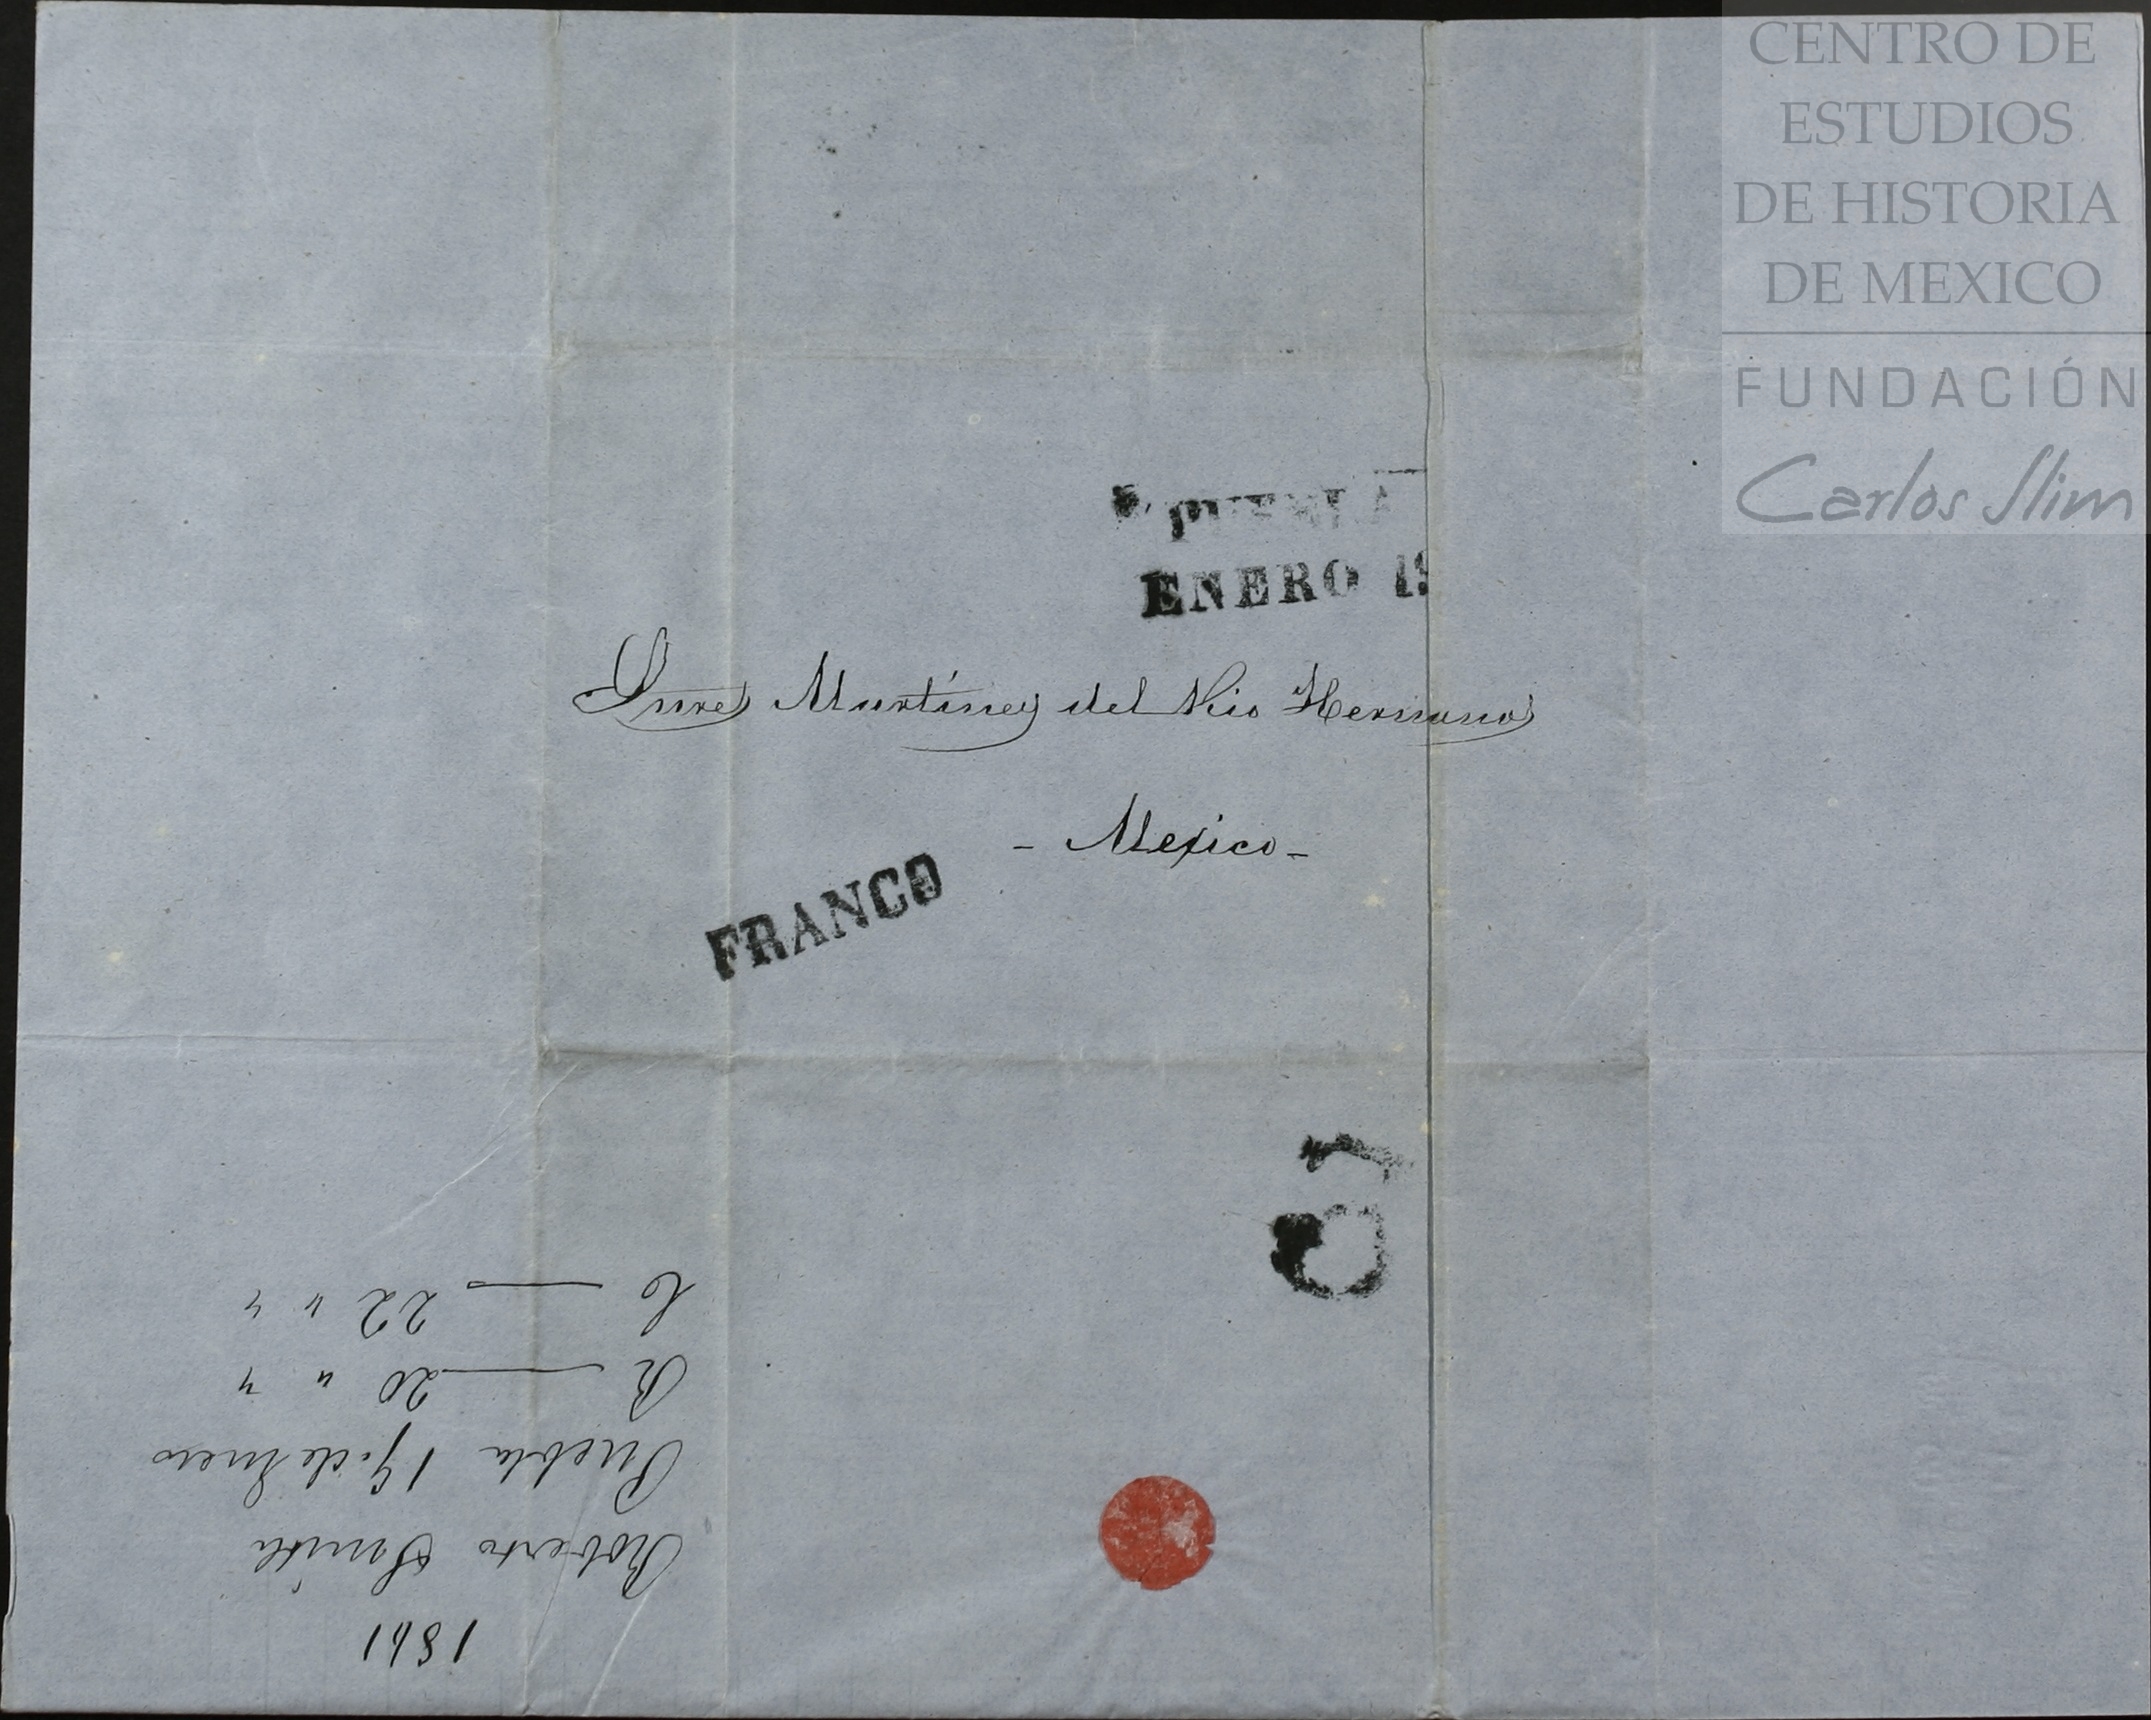 CENTRO DE
ESTUDIOS
DE HISTORIA
DE MEXICO
FUNDACIÓN
Carlos Slim
PUEBLA
ENERO 19
Sures Martínez del Rio Hermanos
- Mexico -
FRANCO
Roberto Smith
Puebla 19. de Enero
R — 20 " "
C — 22 " "